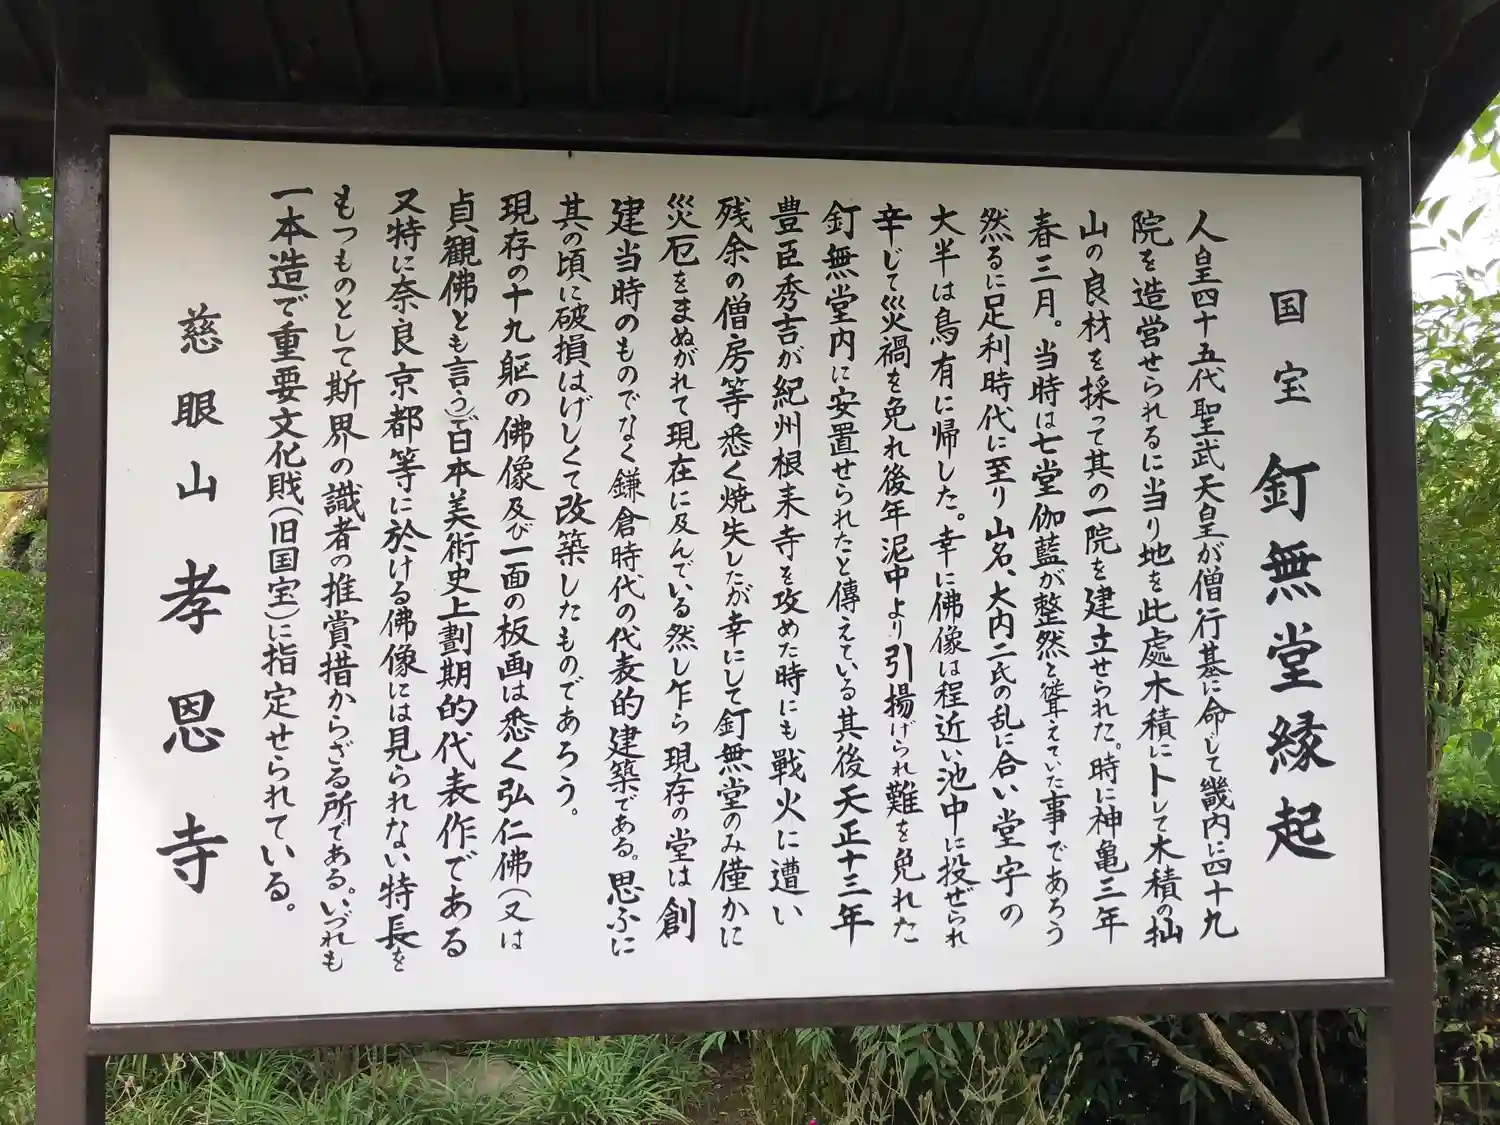 国宝 釘無堂縁起
人皇四十五代聖武天皇が僧行基に命じて畿内に四十九
院を造営せられるに当り地を此處木積にトして木積の杣
山の良材を採って其の一院を建立せられた。時に神亀三年
春三月。当時は七堂伽藍が整然と聳えていた事であろう
然るに足利時代に至り山名、大内二氏の乱に合い堂宇の
大半は鳥有に帰した。幸に佛像は程近い池中に投ぜられ
辛じて災禍を免れ後年泥中より引揚げられ難を免れた
釘無堂内に安置せられたと傳えている其後天正十三年
豊臣秀吉が紀州根来寺を攻めた時にも戦火に遭い
残余の僧房等悉く焼失したが幸にして釘無堂のみ僅かに
災厄をまぬがれて現在に及んでいる然し乍ら現存の堂は創
建当時のものでなく鎌倉時代の代表的建築である。思ふに
其の頃に破損はげしくて改築したものであろう。
現存の十九躯の佛像及び一面の板画は悉く弘仁佛(又は
貞観佛とも言う)で日本美術史上劃期的代表作である
又特に奈良京都等に於ける佛像には見られない特長を
もつものとして斯界の識者の推賞措からざる所である。いづれも
一本造で重要文化財(旧国宝)に指定せられている。
慈眼山 孝恩寺